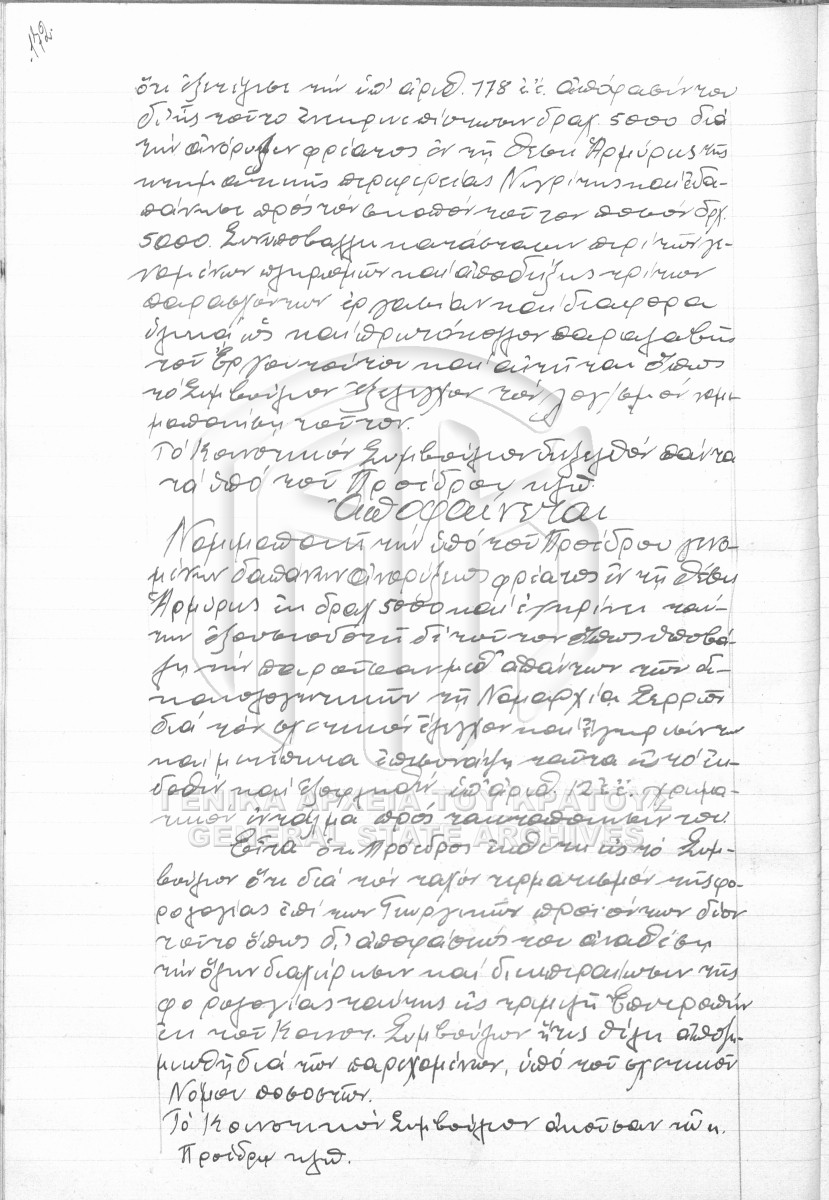 172.
ὅτι ἐξετέλεσε τὴν ὑπ' ἀριθ. 178 ἐ.ἔ. ἀπόφασίν του
δι' ἧς τοῦτο ἐνέκρινε πίστωσιν δραχ. 5000 διὰ
τὴν ἀνόρυξιν φρέατος ἐν τῇ θέσει Ἁρμύρης τῆς
κτηματικῆς περιφερείας Νιγρίτης καὶ ἐδα-
πάνησε πρὸς τὸν σκοπὸν τοῦτον ποσὸν δρχ.
5000. Συνυποβάλλει κατάστασιν περὶ τῶν γε-
νομένων πληρωμῶν καὶ ἀποδείξεις τρίτων
παρασχόντων ἐργασίαν καὶ διάφορα
ὑλικὰ ὡς καὶ πρωτόκολλον παραλαβῆς
τοῦ Ἔργου τούτου καὶ αἰτεῖται ὅπως
τὸ Συμβούλιον ἐξελέγχον τὸν λογ/σμὸν νομι-
μοποιήσῃ τοῦτον.
Τὸ Κοινοτικὸν Συμβούλιον διεξελθὸν πάντα
τὰ ὑπὸ τοῦ Προέδρου κλπ.
Ἀποφαίνεται
Νομιμοποιεῖ τὴν ὑπὸ τοῦ Προέδρου γενο-
μένην δαπάνην ἀνορύξεως φρέατος ἐν τῇ θέσει
Ἁρμύρης ἐκ δραχ 5000 καὶ ἐγκρίνει ταύ-
την ἐξουσιοδοτεῖ δὲ τοῦτον ὅπως ὑποβά-
λῃ τὴν παροῦσαν μεθ' ἁπάντων τῶν δι-
καιολογητικῶν τῇ Νομαρχίᾳ Σερρῶν
διὰ τὸν σχετικὸν ἔλεγχον καὶ ἔγκρισίν των
καὶ μετέπειτα ἐπισυνάψῃ ταῦτα εἰς τὸ ἐκ-
δοθὲν καὶ ἐξοφληθὲν ὑπ' ἀριθ. 12 ἐ.ἔ. χρημα-
τικὸν ἔνταλμα πρὸς τακτοποίησίν του.
Εἶτα ὁ κ. Πρόεδρος ἐκθέτει εἰς τὸ Συμ-
βούλιον ὅτι διὰ τὸν ταχὺν τερματισμὸν τῆς φο-
ρολογίας ἐπὶ των Γεωργικῶν προϊόντων δέον
τοῦτο ὅπως δι' ἀποφάσεώς του ἀναθέσῃ
τὴν ὅλην διαχείρισιν καὶ διεκπεραίωσιν τῆς
φορολογίας ταύτης εἰς τριμελῆ Ἐπιτροπὴν
ἐκ τοῦ Κοινοτ. Συμβουλίου ἥτις θέλει ἀποζη-
μιωθῆ διὰ τῶν παρεχομένων, ὑπὸ τοῦ σχετικοῦ
Νόμου ποσοστῶν.
Τὸ Κοινοτικὸν Συμβούλιον ἀκοῦσαν τοῦ κ.
Προέδρου κλπ.
ΓΕΝΙΚΑ ΑΡΧΕΙΑ ΤΟΥ ΚΡΑΤΟΥΣ
GENERAL STATE ARCHIVES